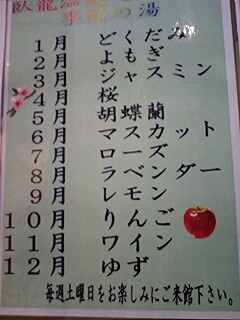 臥龍温泉
季節の湯
1月 どくだみ
2月 よもぎ
3月 ジャスミン
4月 桜
5月 胡蝶蘭
6月 マスカット
7月 ローズ
8月 ラベンダー
9月 レモン
10月 りんご
11月 ワイン
12月 ゆず
毎週土曜日をお楽しみにご来館下さい。